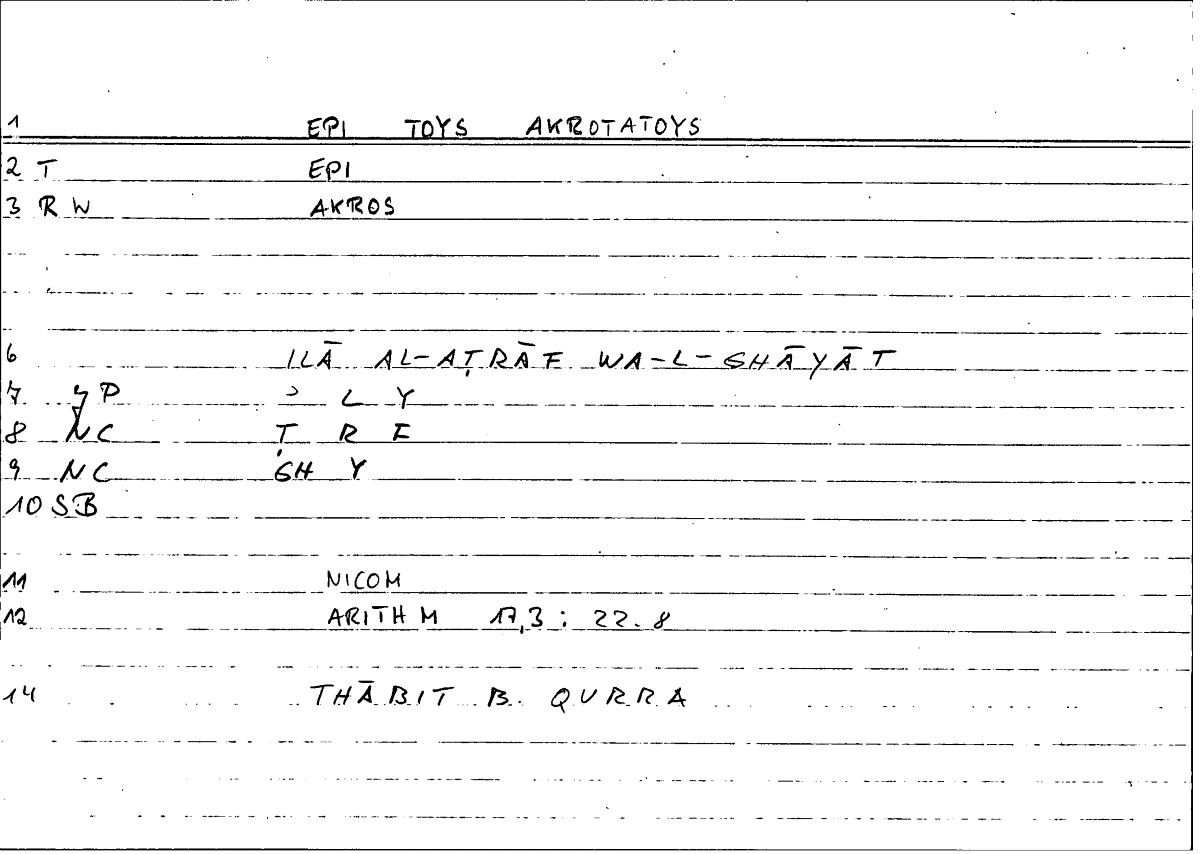 1 EPI TOYS AKROTATOYS
2 T EPI
3 R W AKROS
6 ILĀ AL-AṬRĀF WA-L-GHĀYĀT
7 P ʾ L Y
8 NC Ṭ R F
9 NC GH Y
10 SB
11 NICOM
12 ARITHM 17,3 : 22.8
14 THĀBIT B. QURRA